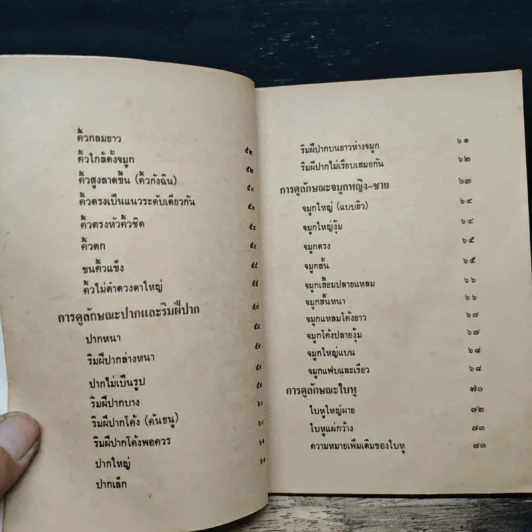 คิ้วกลมยาว
คิ้วใกล้ดั้งจมูก ๕๒
คิ้วสูงลาดขึ้น (คิ้วกังฉิน) ๕๒
คิ้วตรงเป็นแนวระดับเดียวกัน ๕๓
คิ้วตรงหัวคิ้วชิด
คิ้วตก
ขนคิ้วแข็ง
คิ้วไม่ดำดวงตาใหญ่
การดูลักษณะปากและริมฝีปาก
ปากหนา
ริมฝีปากล่างหนา
ปากไม่เป็นรูป
ริมฝีปากบาง
ริมฝีปากโค้ง (คันธนู)
ริมฝีปากโค้งพอควร
ปากใหญ่
ปากเล็ก
ริมฝีปากบนยาวห่างจมูก ๖๑
ริมฝีปากไม่เรียบเสมอกัน ๖๒
การดูลักษณะจมูกหญิง-ชาย ๖๓
จมูกใหญ่ (แบบยิว) ๖๔
จมูกใหญ่งุ้ม ๖๔
จมูกตรง ๖๕
จมูกสั้น ๖๕
จมูกเสี้ยมปลายแหลม ๖๖
จมูกสั้นหนา ๖๖
จมูกแหลมโค้งยาว ๖๗
จมูกโค้งปลายงุ้ม ๖๗
จมูกใหญ่แบน ๖๘
จมูกแฟบและเรียว ๖๘
การดูลักษณะใบหู ๗๐
ใบหูใหญ่ผาย ๗๒
ใบหูแผ่กว้าง ๗๓
ความหมายเพิ่มเติมของใบหู ๗๓